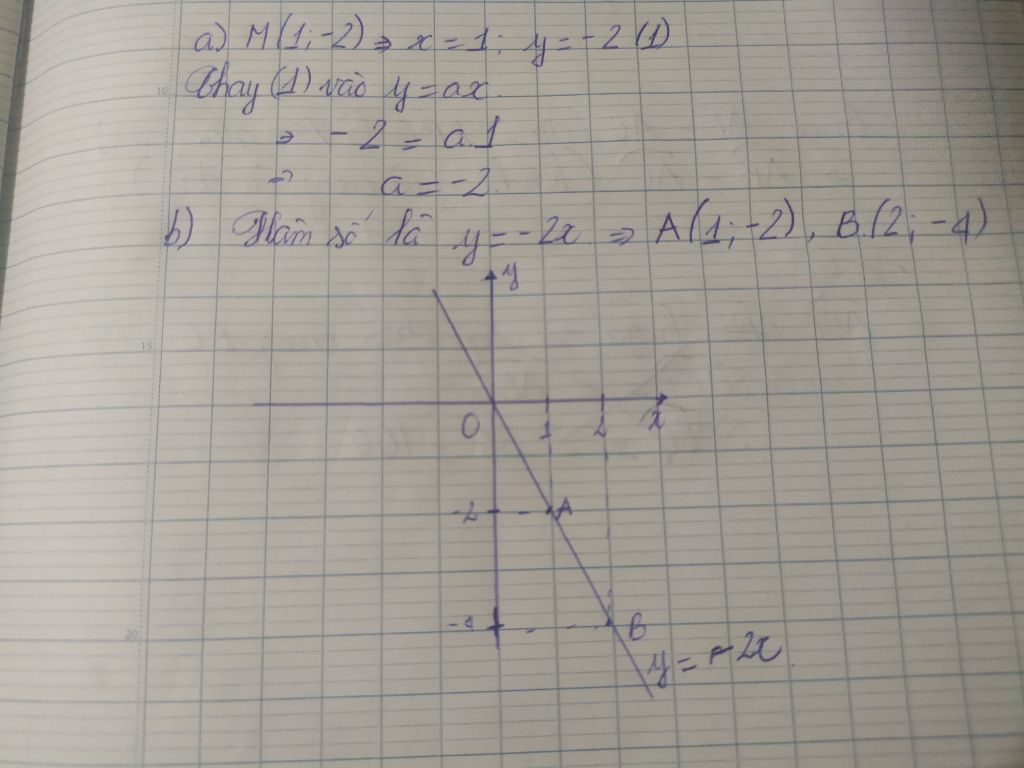 a) M(1;-2) ⇒ x = 1; y = -2 (1)
10 Thay (1) vào y = ax.
⇒ -2 = a.1
⇒ a = -2
b) Hàm số là y = -2x ⇒ A(1;-2), B(2;-4)
y
15
O 1 2 x
-2 A
-4 B
20 y = -2x